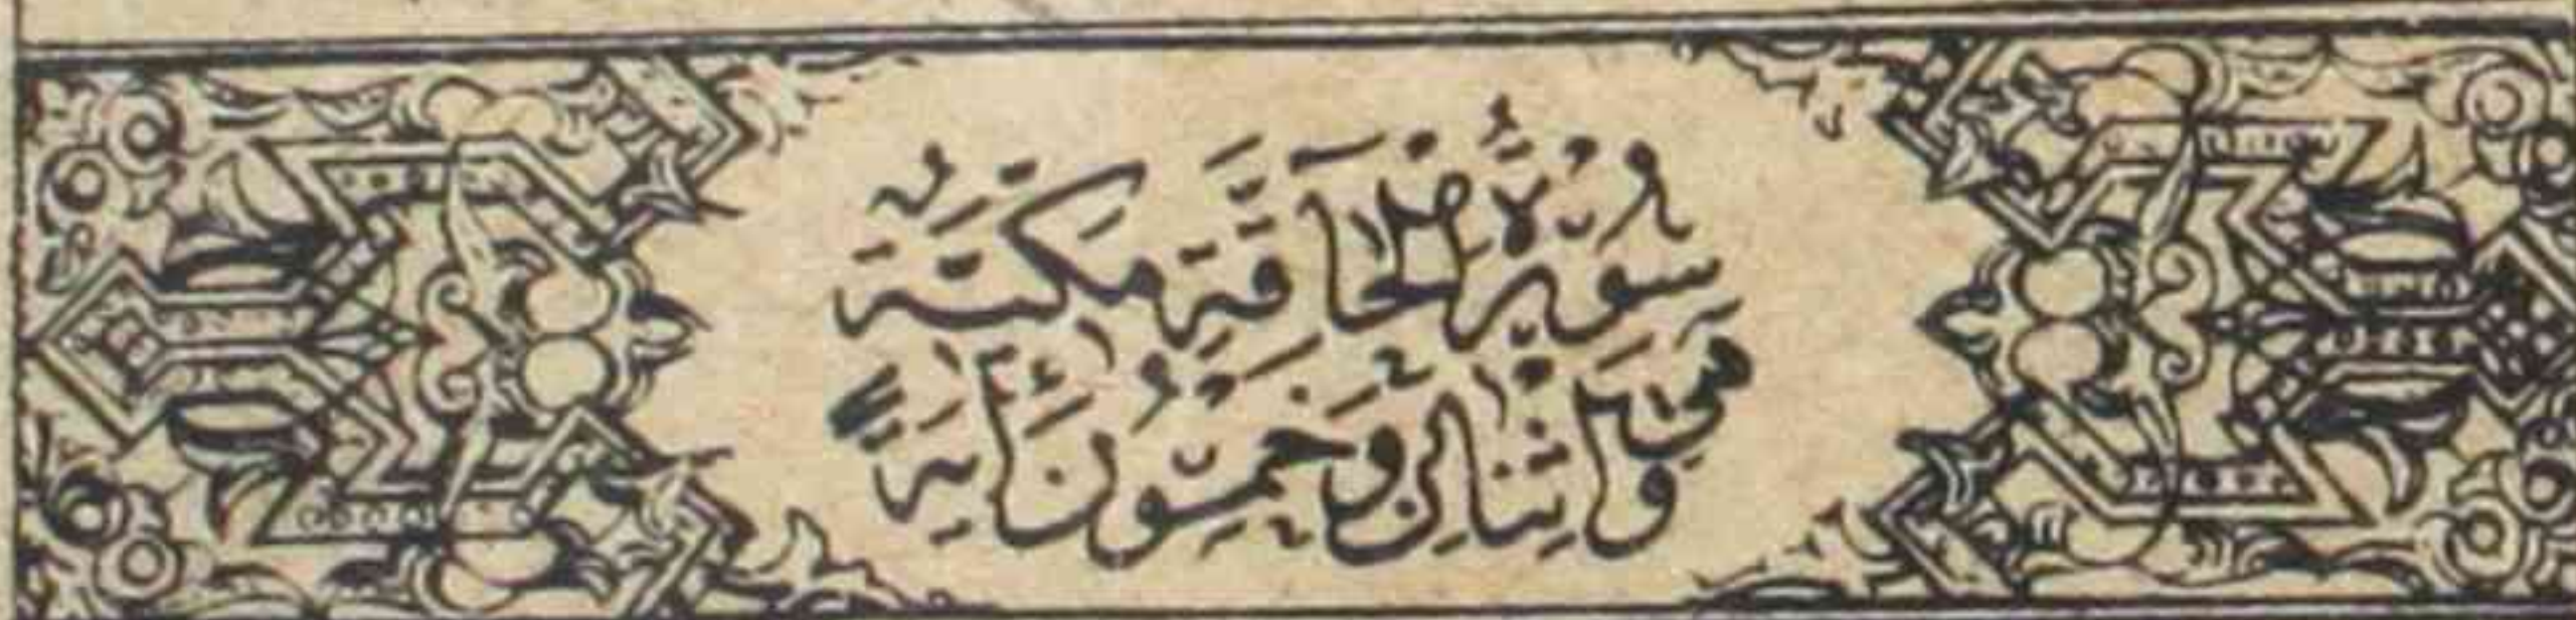 سُورَةُ الْحَاقَّةِ مَكِّيَّةٌ
وَهِيَ اِثْنَتَانِ وَخَمْسُونَ اٰيَةً